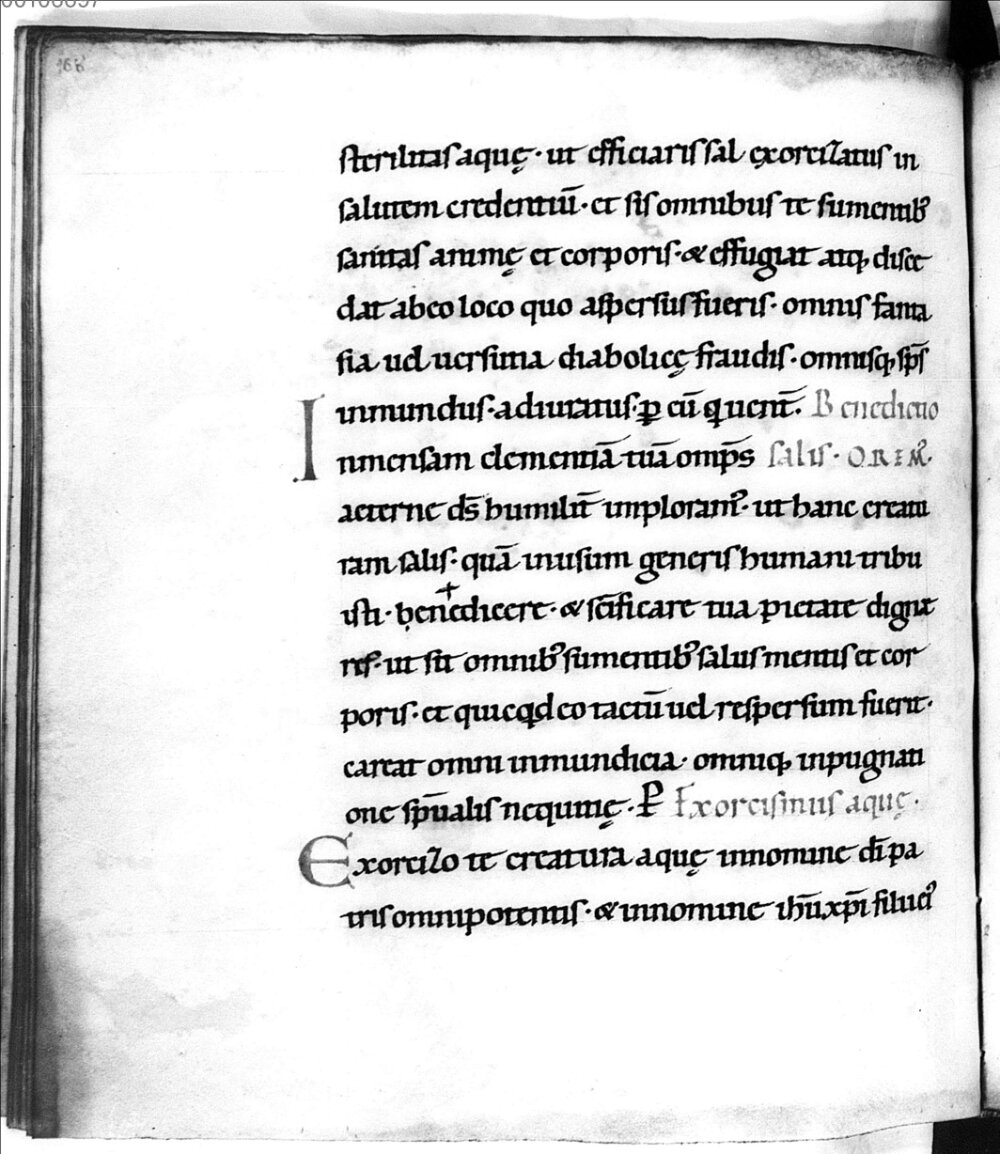 sterilitas aquę· ut efficiaris sal exorcizatus in
salutem credentiū· et sis omnibus te sumentibꝰ
sanitas animę et corporis· & effugiat atq; disce
dat ab eo loco quo aspersus fueris· omnis fanta
sia uel uersutia diabolicę fraudis· omnisq; sp̄s
inmundus· adiuratus· ꝑ eū q' uent̄. Benedictio
Inmensam clementiā tuā omp̄s salis· OREMꝰ·
aeterne ds̄ humilit̄ imploramꝰ· ut hanc creatu
ram salis· quā in usum generis humani tribu
isti· bene+dicere· & sc̄ificare tua pietate digne
ris· ut sit omnibꝰ sumentibꝰ salus mentis et cor
poris· et quicq̇d eo tactū uel respersum fuerit·
careat omni inmundicia· omniq; inpugnati
one sp̄ualis nequitię· P Exorcismus aquę·
Exorcizo te creatura aquę in nomine dī pa
tris omnipotentis· & in nomine ih̄u xp̄i filii eiꝰ